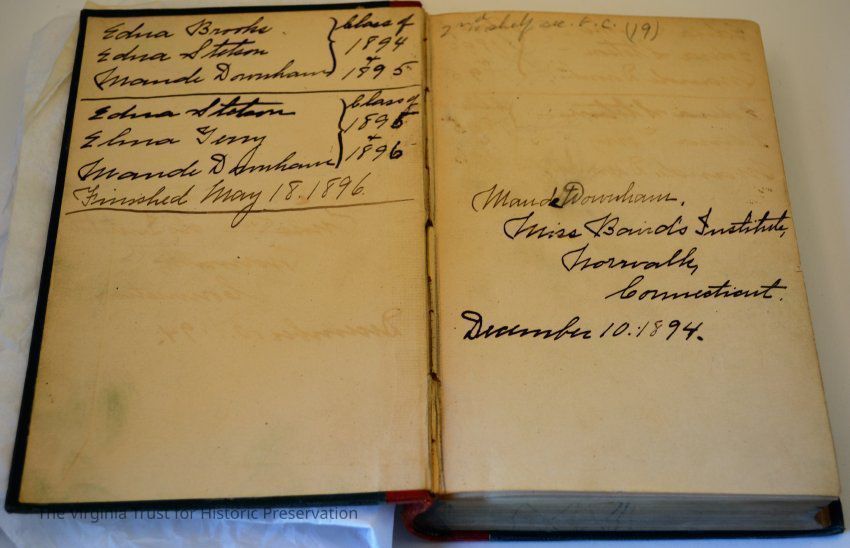 Edna Brooks
Edna Stetson
Maude Downham
Class of
1894
+
1895
Edna Stetson
Elma Terry
Maude Downham
Class of
1895
+
1896
Finished May 18. 1896.
2nd shelf sec. F. C. (19)
Maude Downham,
Miss Baird's Institute,
Norwalk,
Connecticut.
December 10. 1894.
The Virginia Trust for Historic Preservation